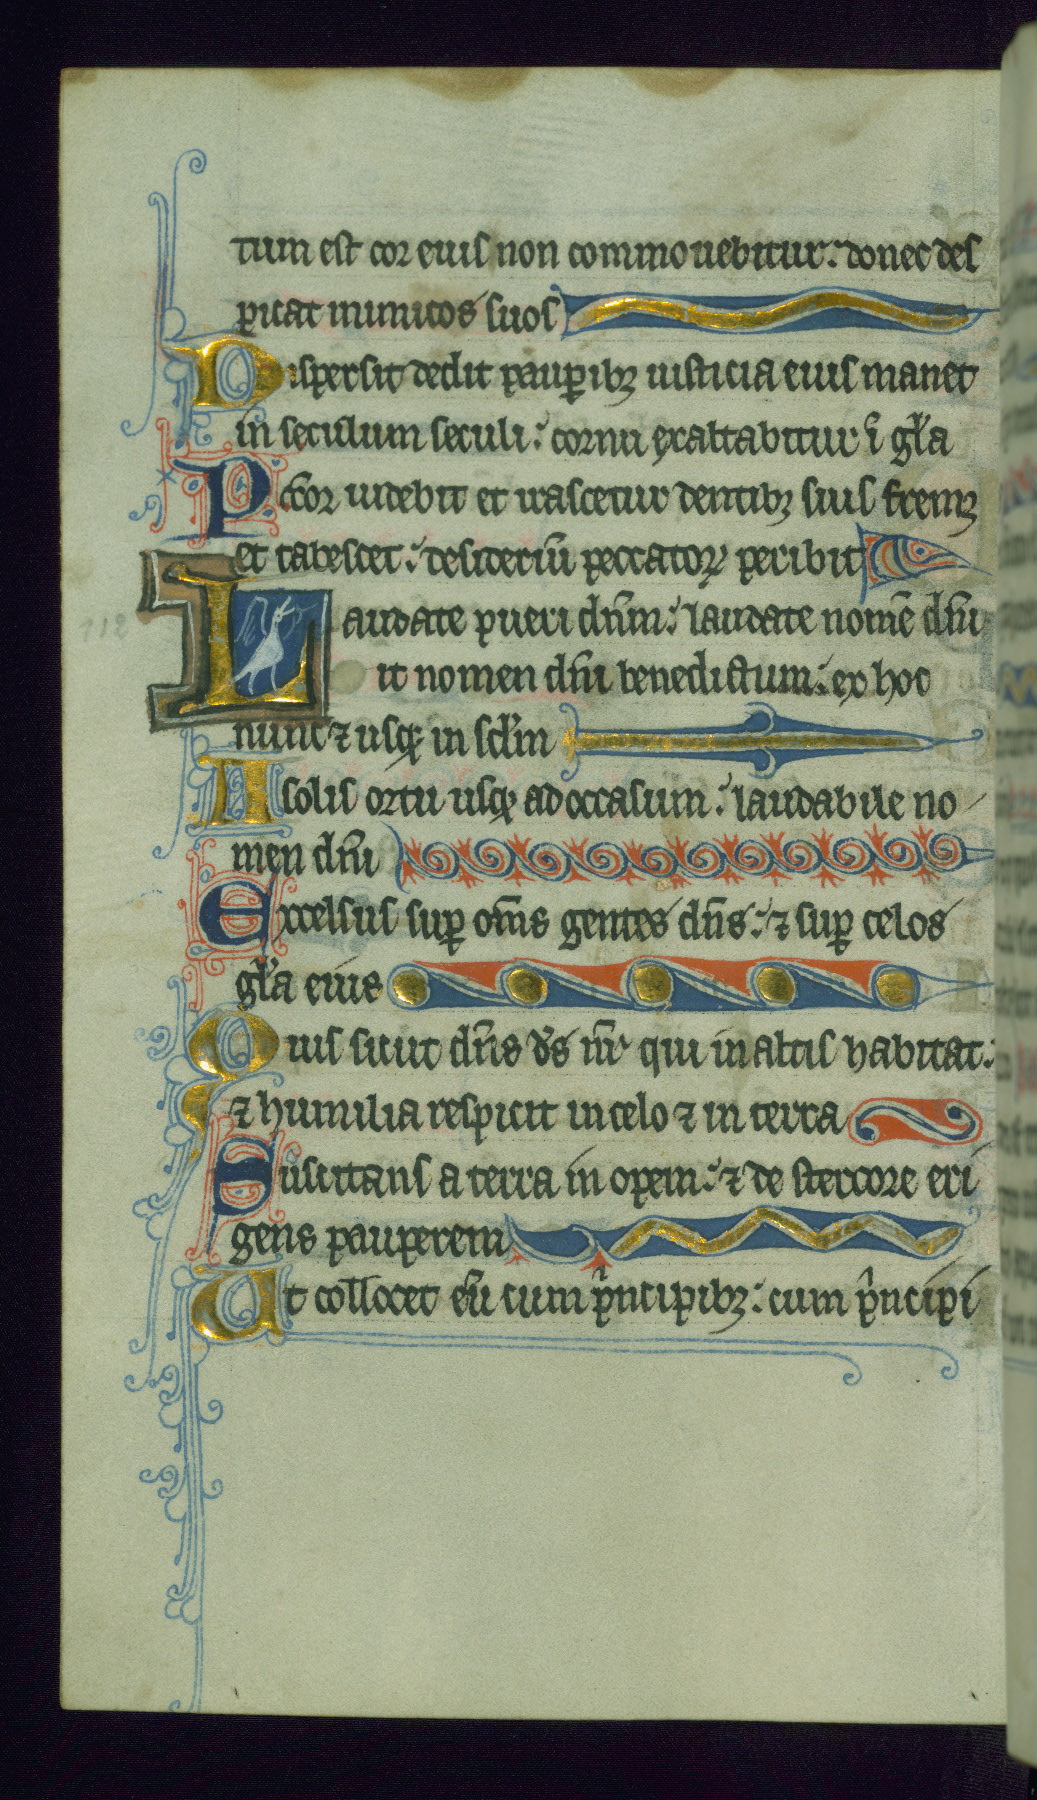 tum est cor eius non commouebitur: donec des
picat inimicos suos
Dispersit dedit paupibꝫ iusticia eius manet
in seculum seculi: cornu exaltabitur ī gl̄a
Pctor̄ uidebit et irascetur dentibꝫ suis fremꝫ
et tabescet: desideriū peccatoꝝ peribit
Laudate pueri dn̄m: laudate nomē dn̄i
it nomen dn̄i benedictum: ex hoc
nunc ⁊ usqꝫ in sc̄lm
A solis ortu usqꝫ ad occasum: laudabile no
men dn̄i
Excelsus suꝑ om̄s gentes dn̄s: ⁊ suꝑ celos
gl̄a eius
Quis sicut dn̄s ds̄ nr̄ qui in altis habitat:
⁊ humilia respicit in celo ⁊ in terra
Suscitans a terra inopem: ⁊ de stercore eri
gens pauperem
Ut collocet eū cum pͥncipibꝫ: cum pͥncipi
112